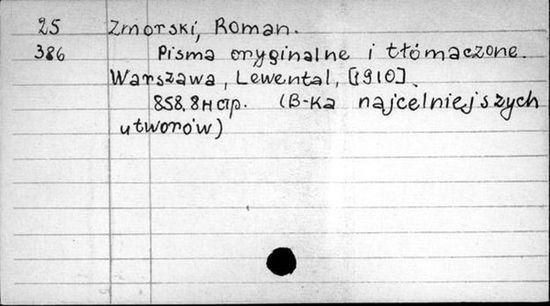 25 Zmorski, Roman.
386 Pisma oryginalne i tłómaczone.
Warszawa, Lewental, [1910].
858, 8н стр. (B-ka najcelniejszych
utworów)